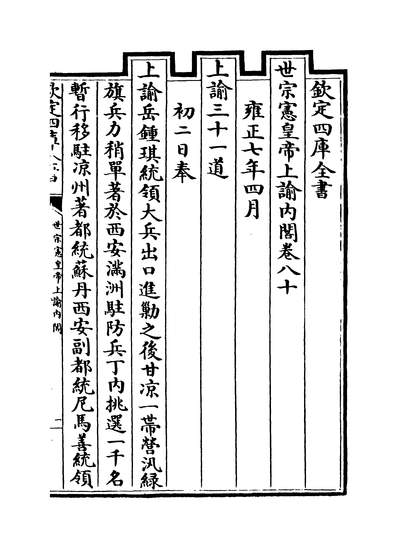 欽定四庫全書
世宗憲皇帝上諭內閣卷八十
雍正七年四月
上諭三十一道
初二日奉
上諭岳鍾琪統領大兵出口進勦之後甘凉一帶營汛綠
旗兵力稍單著於西安滿洲駐防兵丁內挑選一千名
暫行移駐凉州著都統蘇丹西安副都統尼馬善統領
欽定四庫全書
世宗憲皇帝上諭內閣